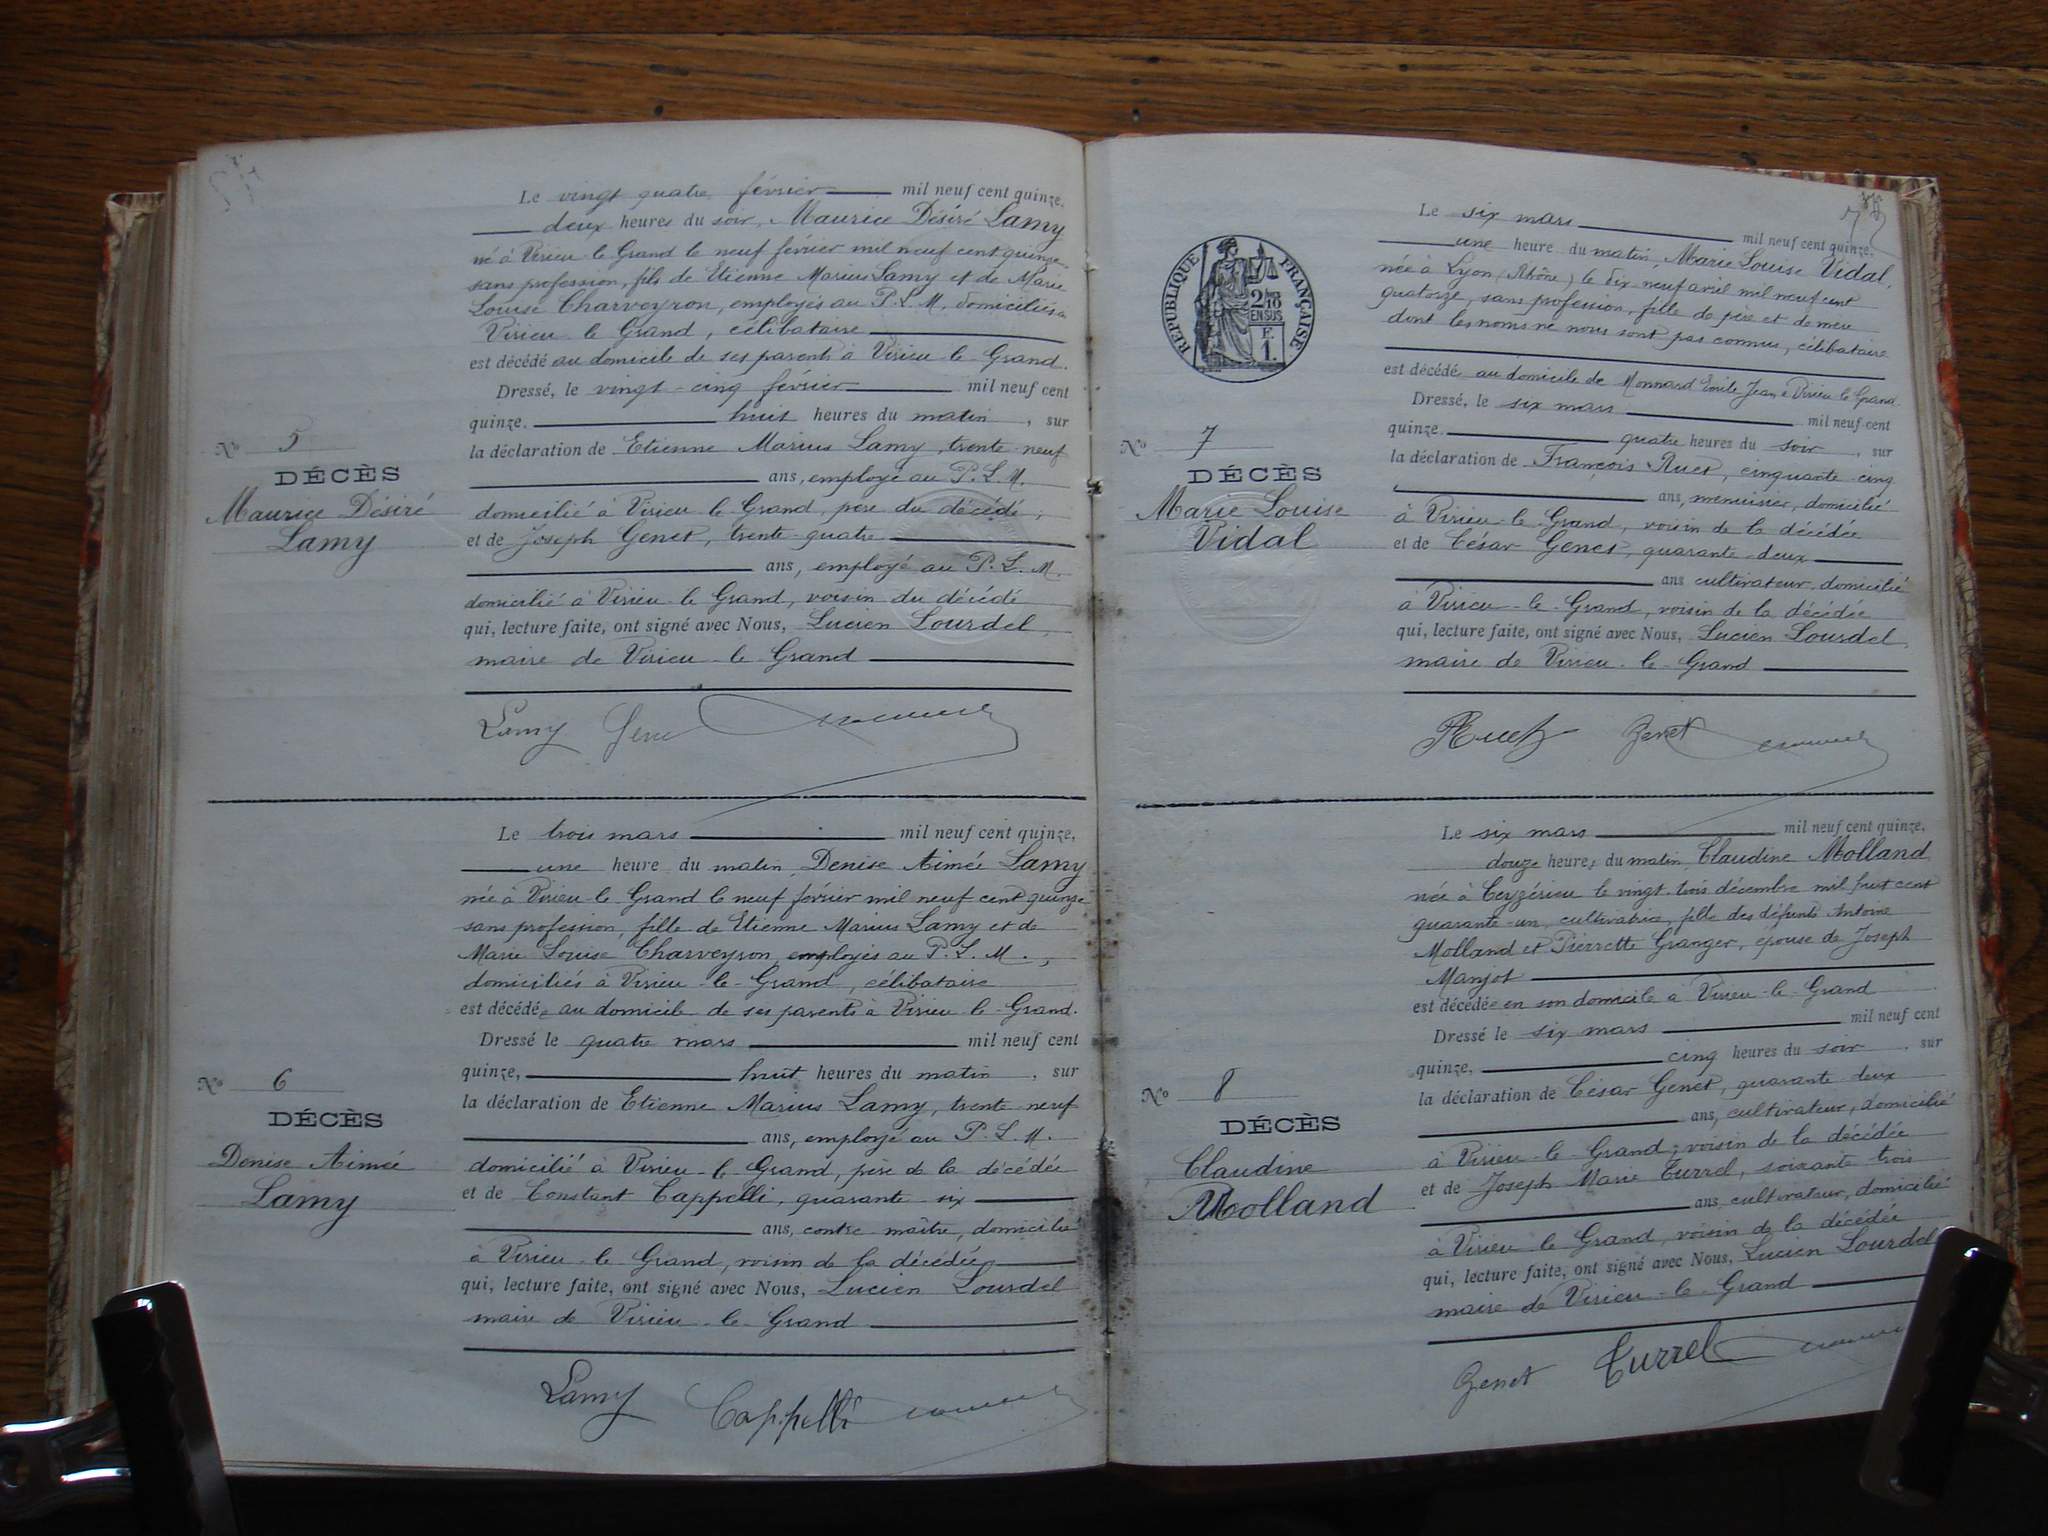 Le vingt quatre février mil neuf cent quinze.
deux heures du soir, Maurice Désiré Lamy
né à Virieu-le-Grand le neuf février mil neuf cent quinze
sans profession, fils de Etienne Marius Lamy et de Marie
Louise Charveyron, employés au P.L.M. domiciliés à
Virieu-le-Grand, célibataire
est décédé au domicile de ses parents à Virieu-le-Grand.
Dressé, le vingt-cinq février mil neuf cent
quinze. huit heures du matin, sur
la déclaration de Etienne Marius Lamy, trente-neuf
ans, employé au P.L.M.
domicilié à Virieu-le-Grand, père du décédé,
et de Joseph Genet, trente-quatre
ans, employé au P.L.M.
domicilié à Virieu-le-Grand, voisin du décédé
qui, lecture faite, ont signé avec Nous, Lucien Lourdel,
maire de Virieu-le-Grand
Lamy
No 5
DÉCÈS
Maurice Désiré
Lamy
Le trois mars mil neuf cent quinze,
une heure du matin, Denise Aimée Lamy
née à Virieu-le-Grand le neuf février mil neuf cent quinze
sans profession, fille de Etienne Marius Lamy et de
Marie Louise Charveyron, employés au P.L.M.,
domiciliés à Virieu-le-Grand, célibataire
est décédée au domicile de ses parents à Virieu-le-Grand.
Dressé le quatre mars mil neuf cent
quinze, huit heures du matin, sur
la déclaration de Etienne Marius Lamy, trente-neuf
ans, employé au P.L.M.
domicilié à Virieu-le-Grand, père de la décédée
et de Constant Cappelli, quarante-six
ans, contre-maître, domicilié
à Virieu-le-Grand, voisin de la décédée
qui, lecture faite, ont signé avec Nous, Lucien Lourdel
maire de Virieu-le-Grand
Lamy Cappelli
No 6
DÉCÈS
Denise Aimée
Lamy
RÉPUBLIQUE FRANÇAISE
2/10
EN SUS
F.
1.
Le six mars mil neuf cent quinze.
une heure du matin, Marie Louise Vidal,
née à Lyon (Rhône) le dix-neuf avril mil neuf cent
quatorze, sans profession, fille de père et de mère
dont les noms ne nous sont pas connus, célibataire
est décédée au domicile de Monnard Emile Jean à Virieu-le-Grand
Dressé, le six mars mil neuf cent
quinze. quatre heures du soir, sur
la déclaration de François Ruet, cinquante-cinq
ans, menuisier, domicilié
à Virieu-le-Grand, voisin de la décédée
et de César Genet, quarante-deux
ans cultivateur, domicilié
à Virieu-le-Grand, voisin de la décédée
qui, lecture faite, ont signé avec Nous, Lucien Lourdel
maire de Virieu-le-Grand
Genet
No 7
DÉCÈS
Marie Louise
Vidal
Le six mars mil neuf cent quinze,
douze heures du matin, Claudine Molland
née à Ceyzérieu le vingt-trois décembre mil huit cent
quarante-un, cultivatrice, fille des défunts Antoine
Molland et Pierrette Granger, épouse de Joseph
Manjot
est décédée en son domicile à Virieu-le-Grand
Dressé le six mars mil neuf cent
quinze, cinq heures du soir, sur
la déclaration de César Genet, quarante-deux
ans, cultivateur, domicilié
à Virieu-le-Grand, voisin de la décédée
et de Joseph Marie Turrel, soixante-trois
ans, cultivateur, domicilié
à Virieu-le-Grand, voisin de la décédée
qui, lecture faite, ont signé avec Nous, Lucien Lourdel
maire de Virieu-le-Grand
Genet Turrel
No 8
DÉCÈS
Claudine
Molland